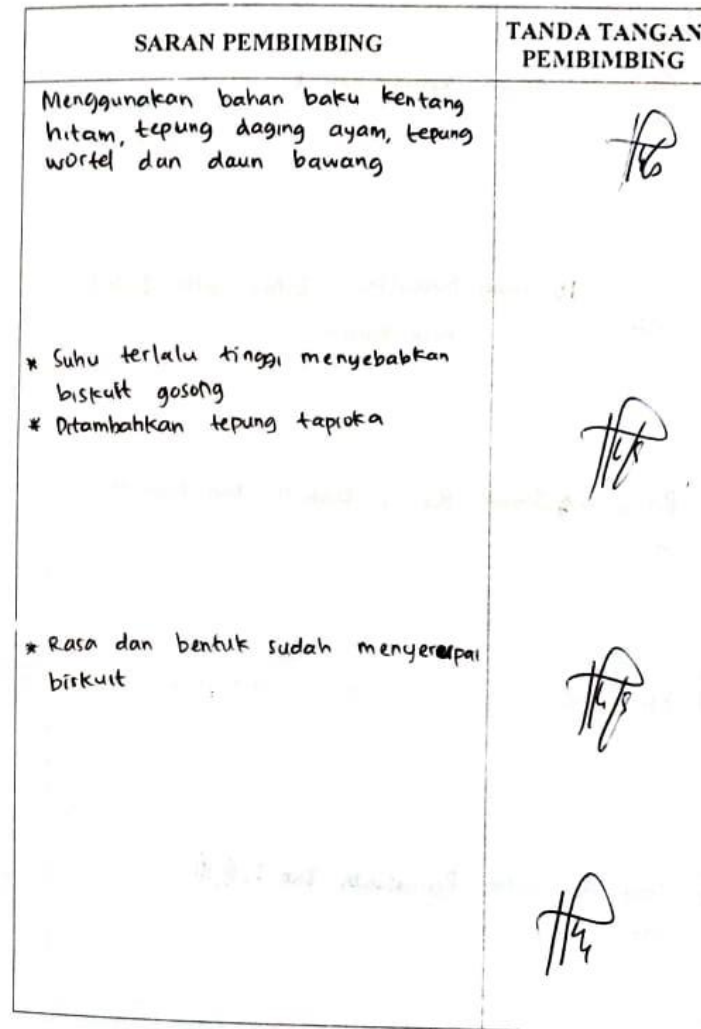 SARAN PEMBIMBING
TANDA TANGAN
PEMBIMBING
Menggunakan bahan baku kentang
hitam, tepung daging ayam, tepung
wortel dan daun bawang
* Suhu terlalu tinggi menyebabkan
biskuit gosong
* Ditambahkan tepung tapioka
* Rasa dan bentuk sudah menyerupai
biskuit